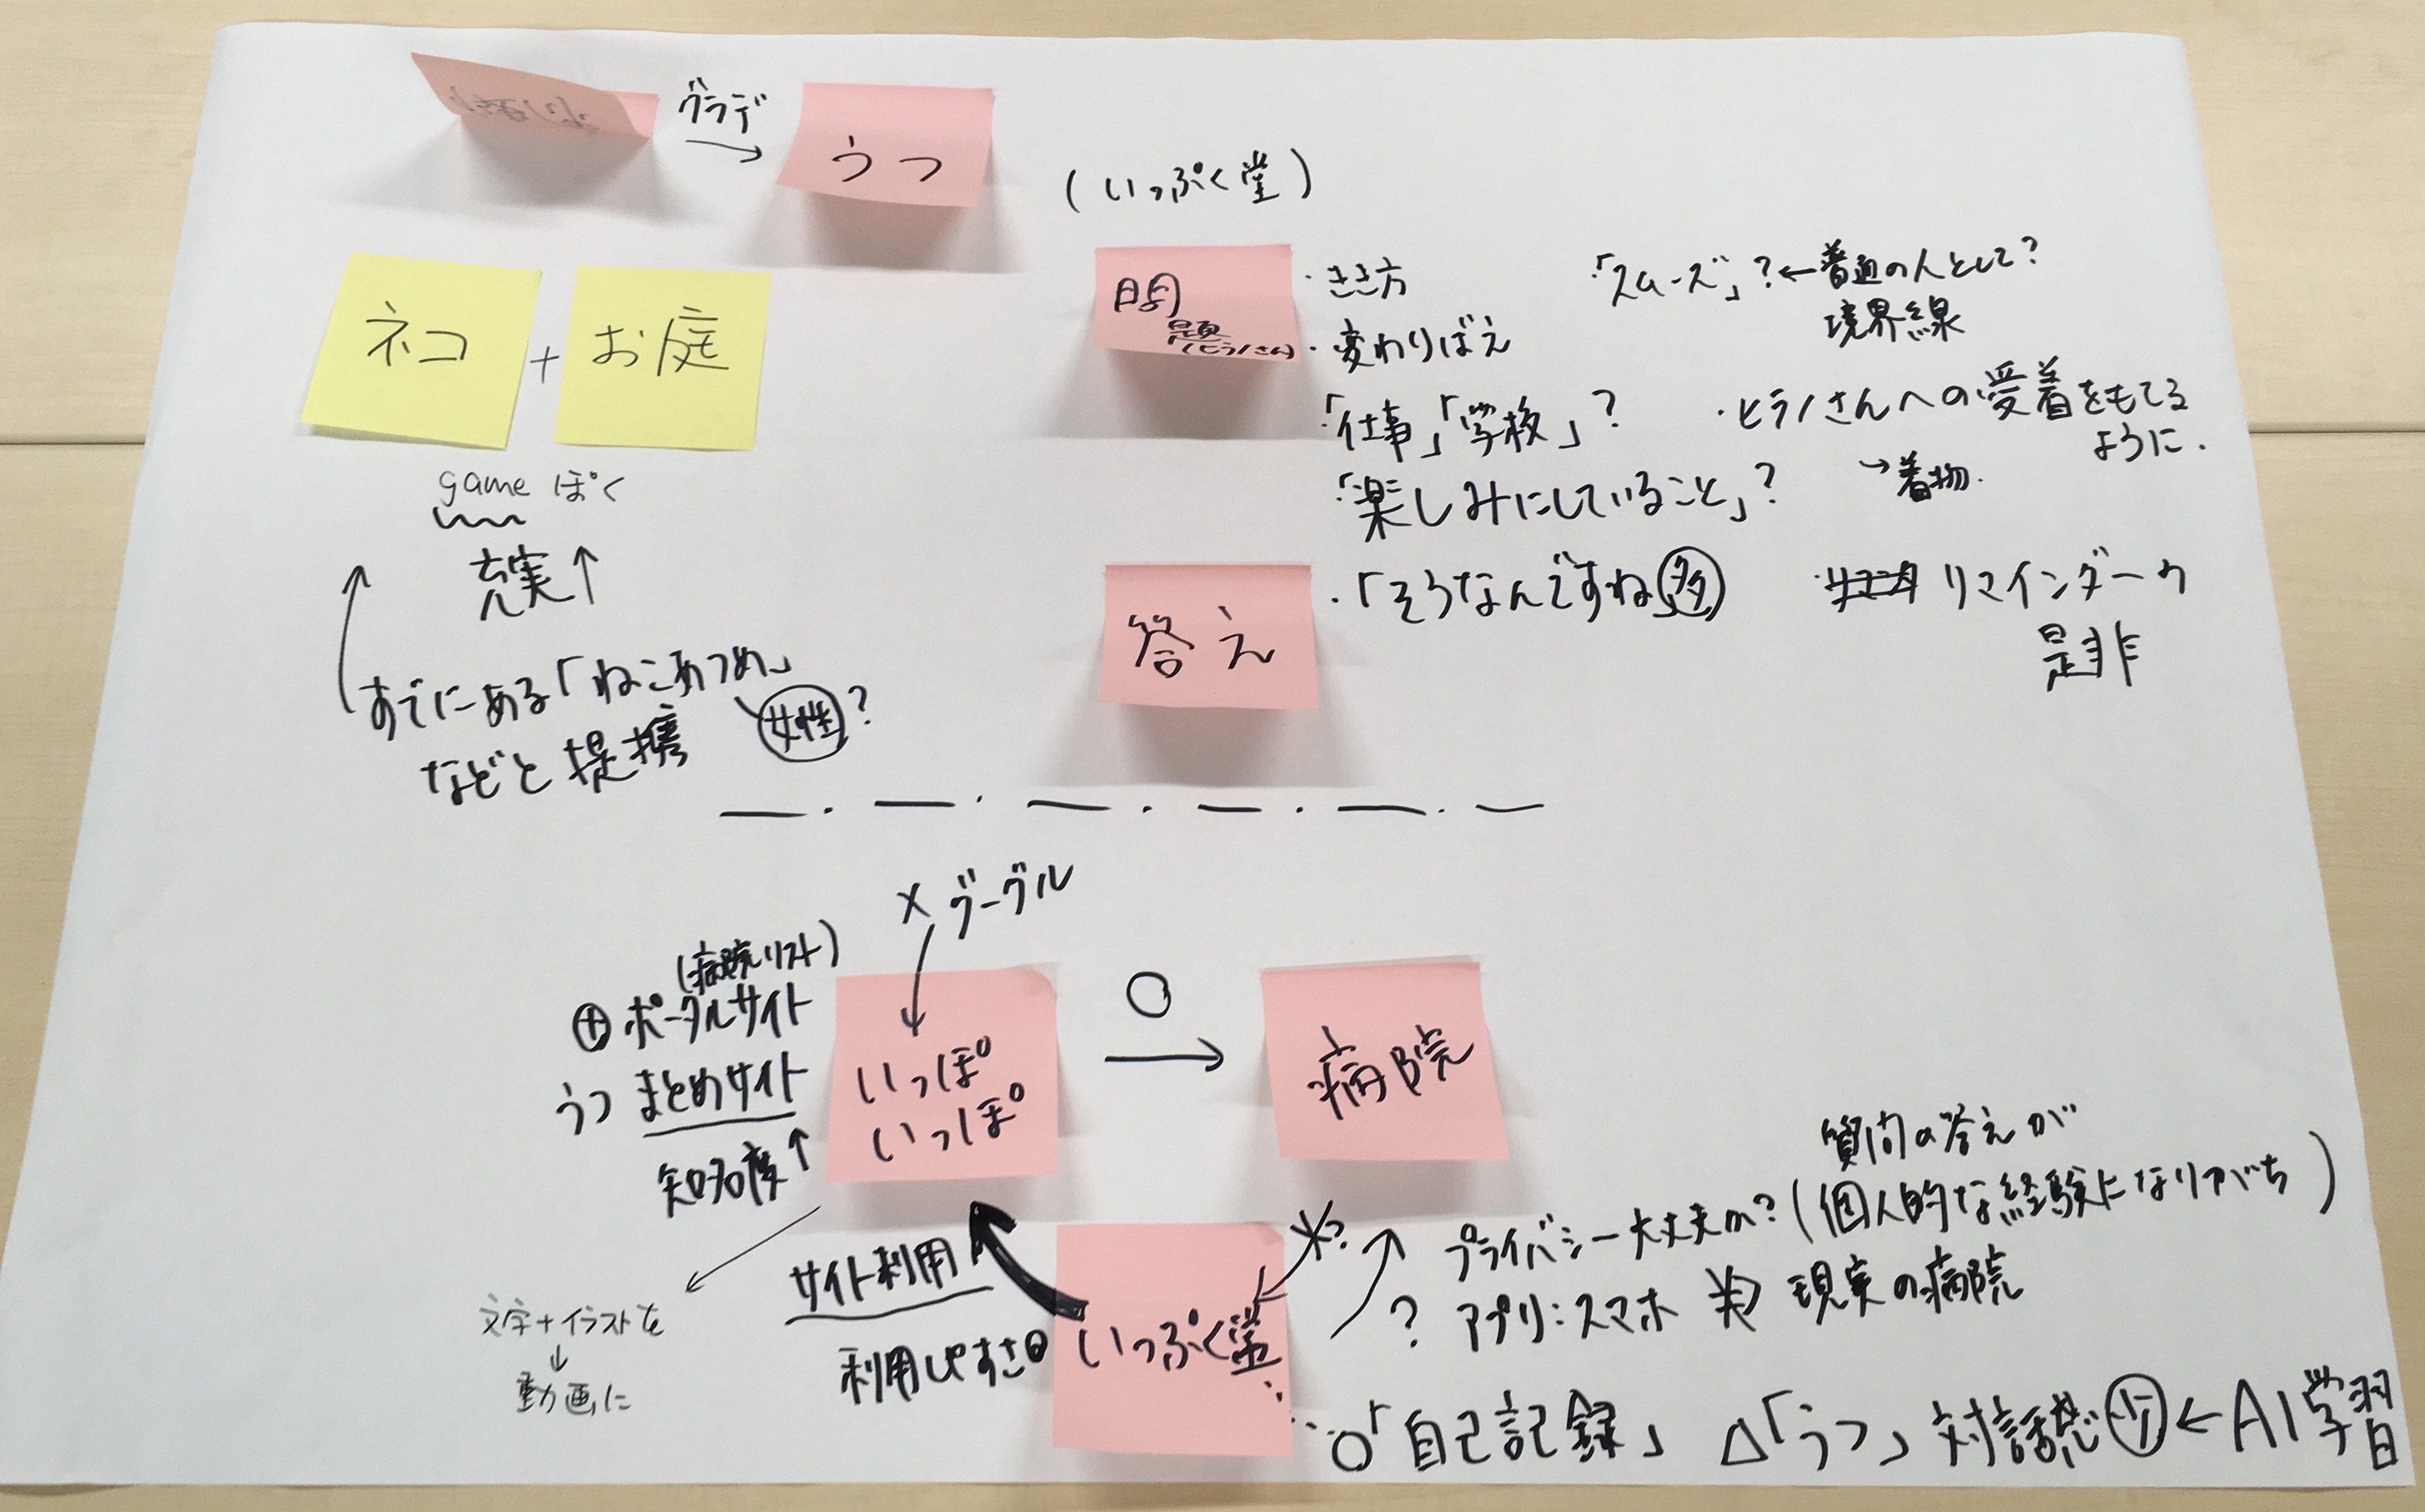 グラデ
うつ
(いっぷく堂)
ネコ
+
お庭
gameぽく
充実↑
すでにある「ねこあつめ」
などと提携
女性?
問題
(ヒラノさん)
・きき方
・変わりばえ
・「仕事」「学校」?
・「楽しみにしていること」?
・「スムーズ」?←普通の人として?
境界線
・ヒラノさんへの受着をもてる
ように.
→着物.
答え
・「そうなんですね」多
・リマインダーウ
是非
× グーグル
(病院リスト)
⊕ポータルサイト
うつ まとめサイト
知名度↑
いっぽ
いっぽ
○
病院
文字+イラストを
↓
動画に
サイト利用
利用しやすさ
いっぷく堂
?
質問の答えが
プライバシー大丈夫か?(個人的な経験になりがち)
? アプリ:スマホ 現実の病院
○「自己記録」 △「うつ」対話感少←AI学習